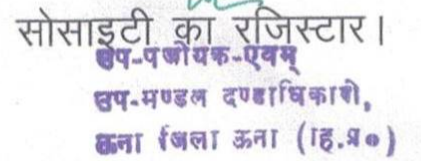 सोसाइटी का रजिस्टार।
उप-पंजीयक-एवम्
उप-मण्डल दण्डाधिकारी,
ऊना जिला ऊना (हि.प्र०)